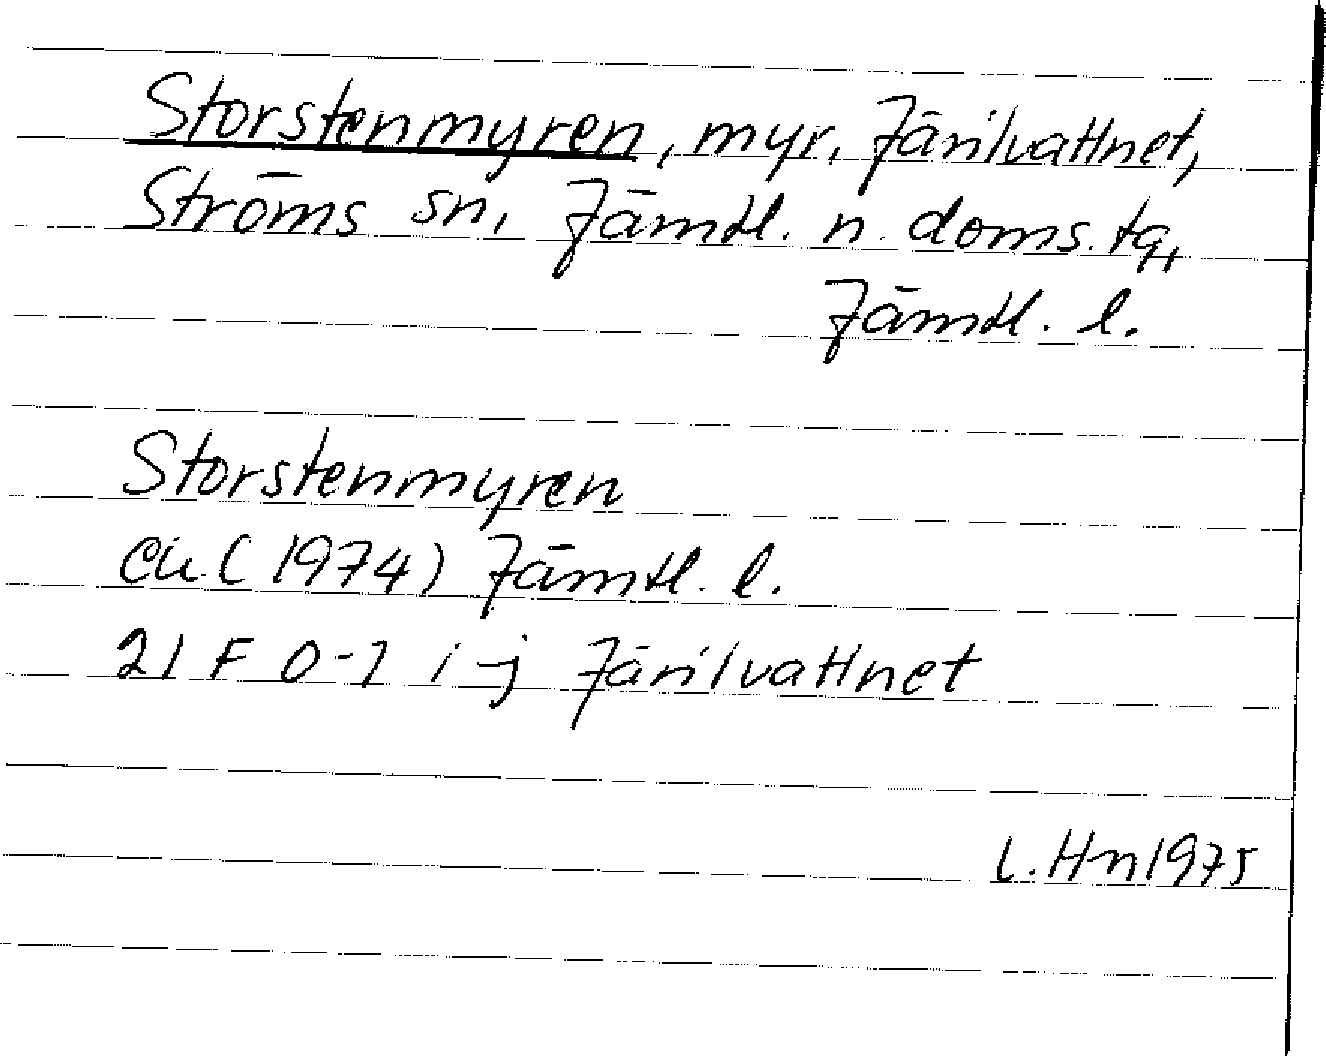 Storstenmyren, myr, Järilvattnet,
Ströms sn, Jämtl. n. doms. tg,
Jämtl. l.
Storstenmyren
(1974) Jämtl. l.
21 F 0-1 i-j Järilvattnet
L. Hn 1975